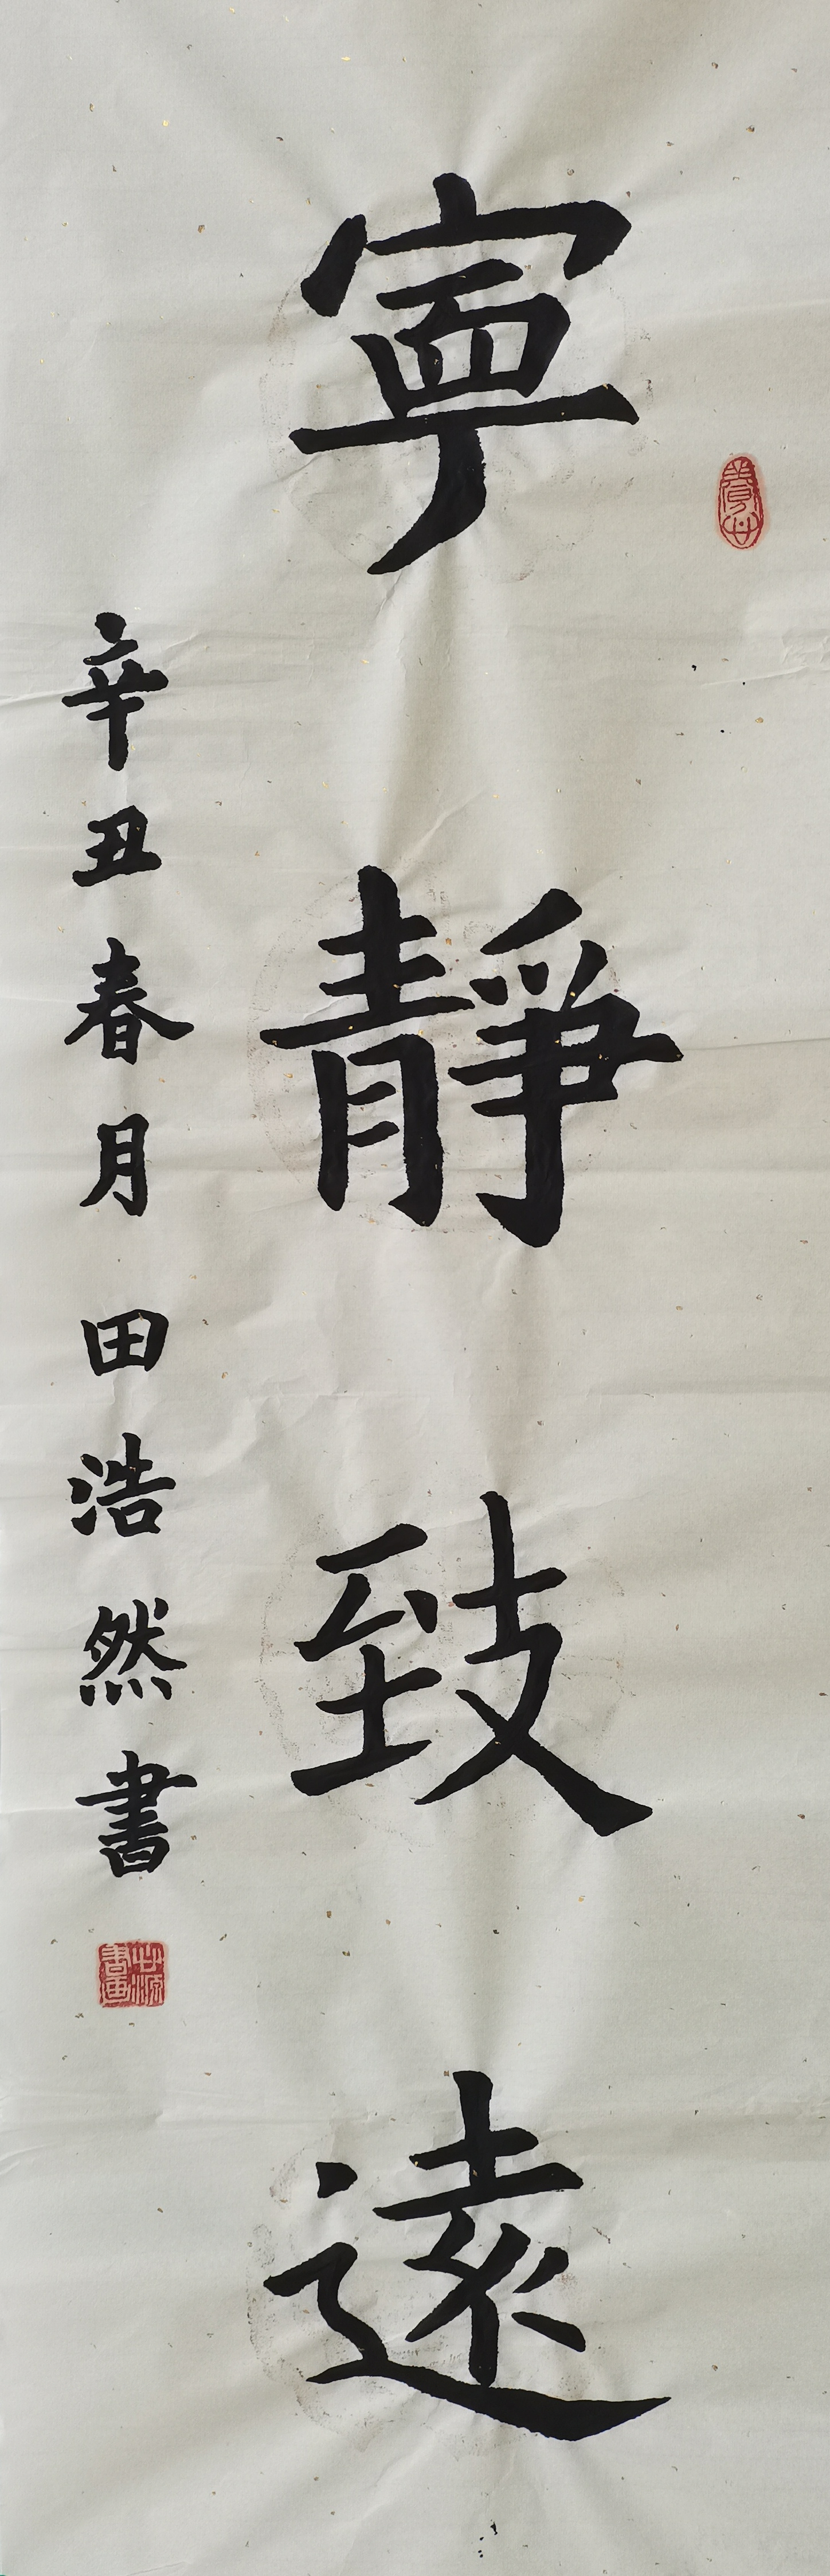 寧靜致遠
辛丑春月 田浩然書